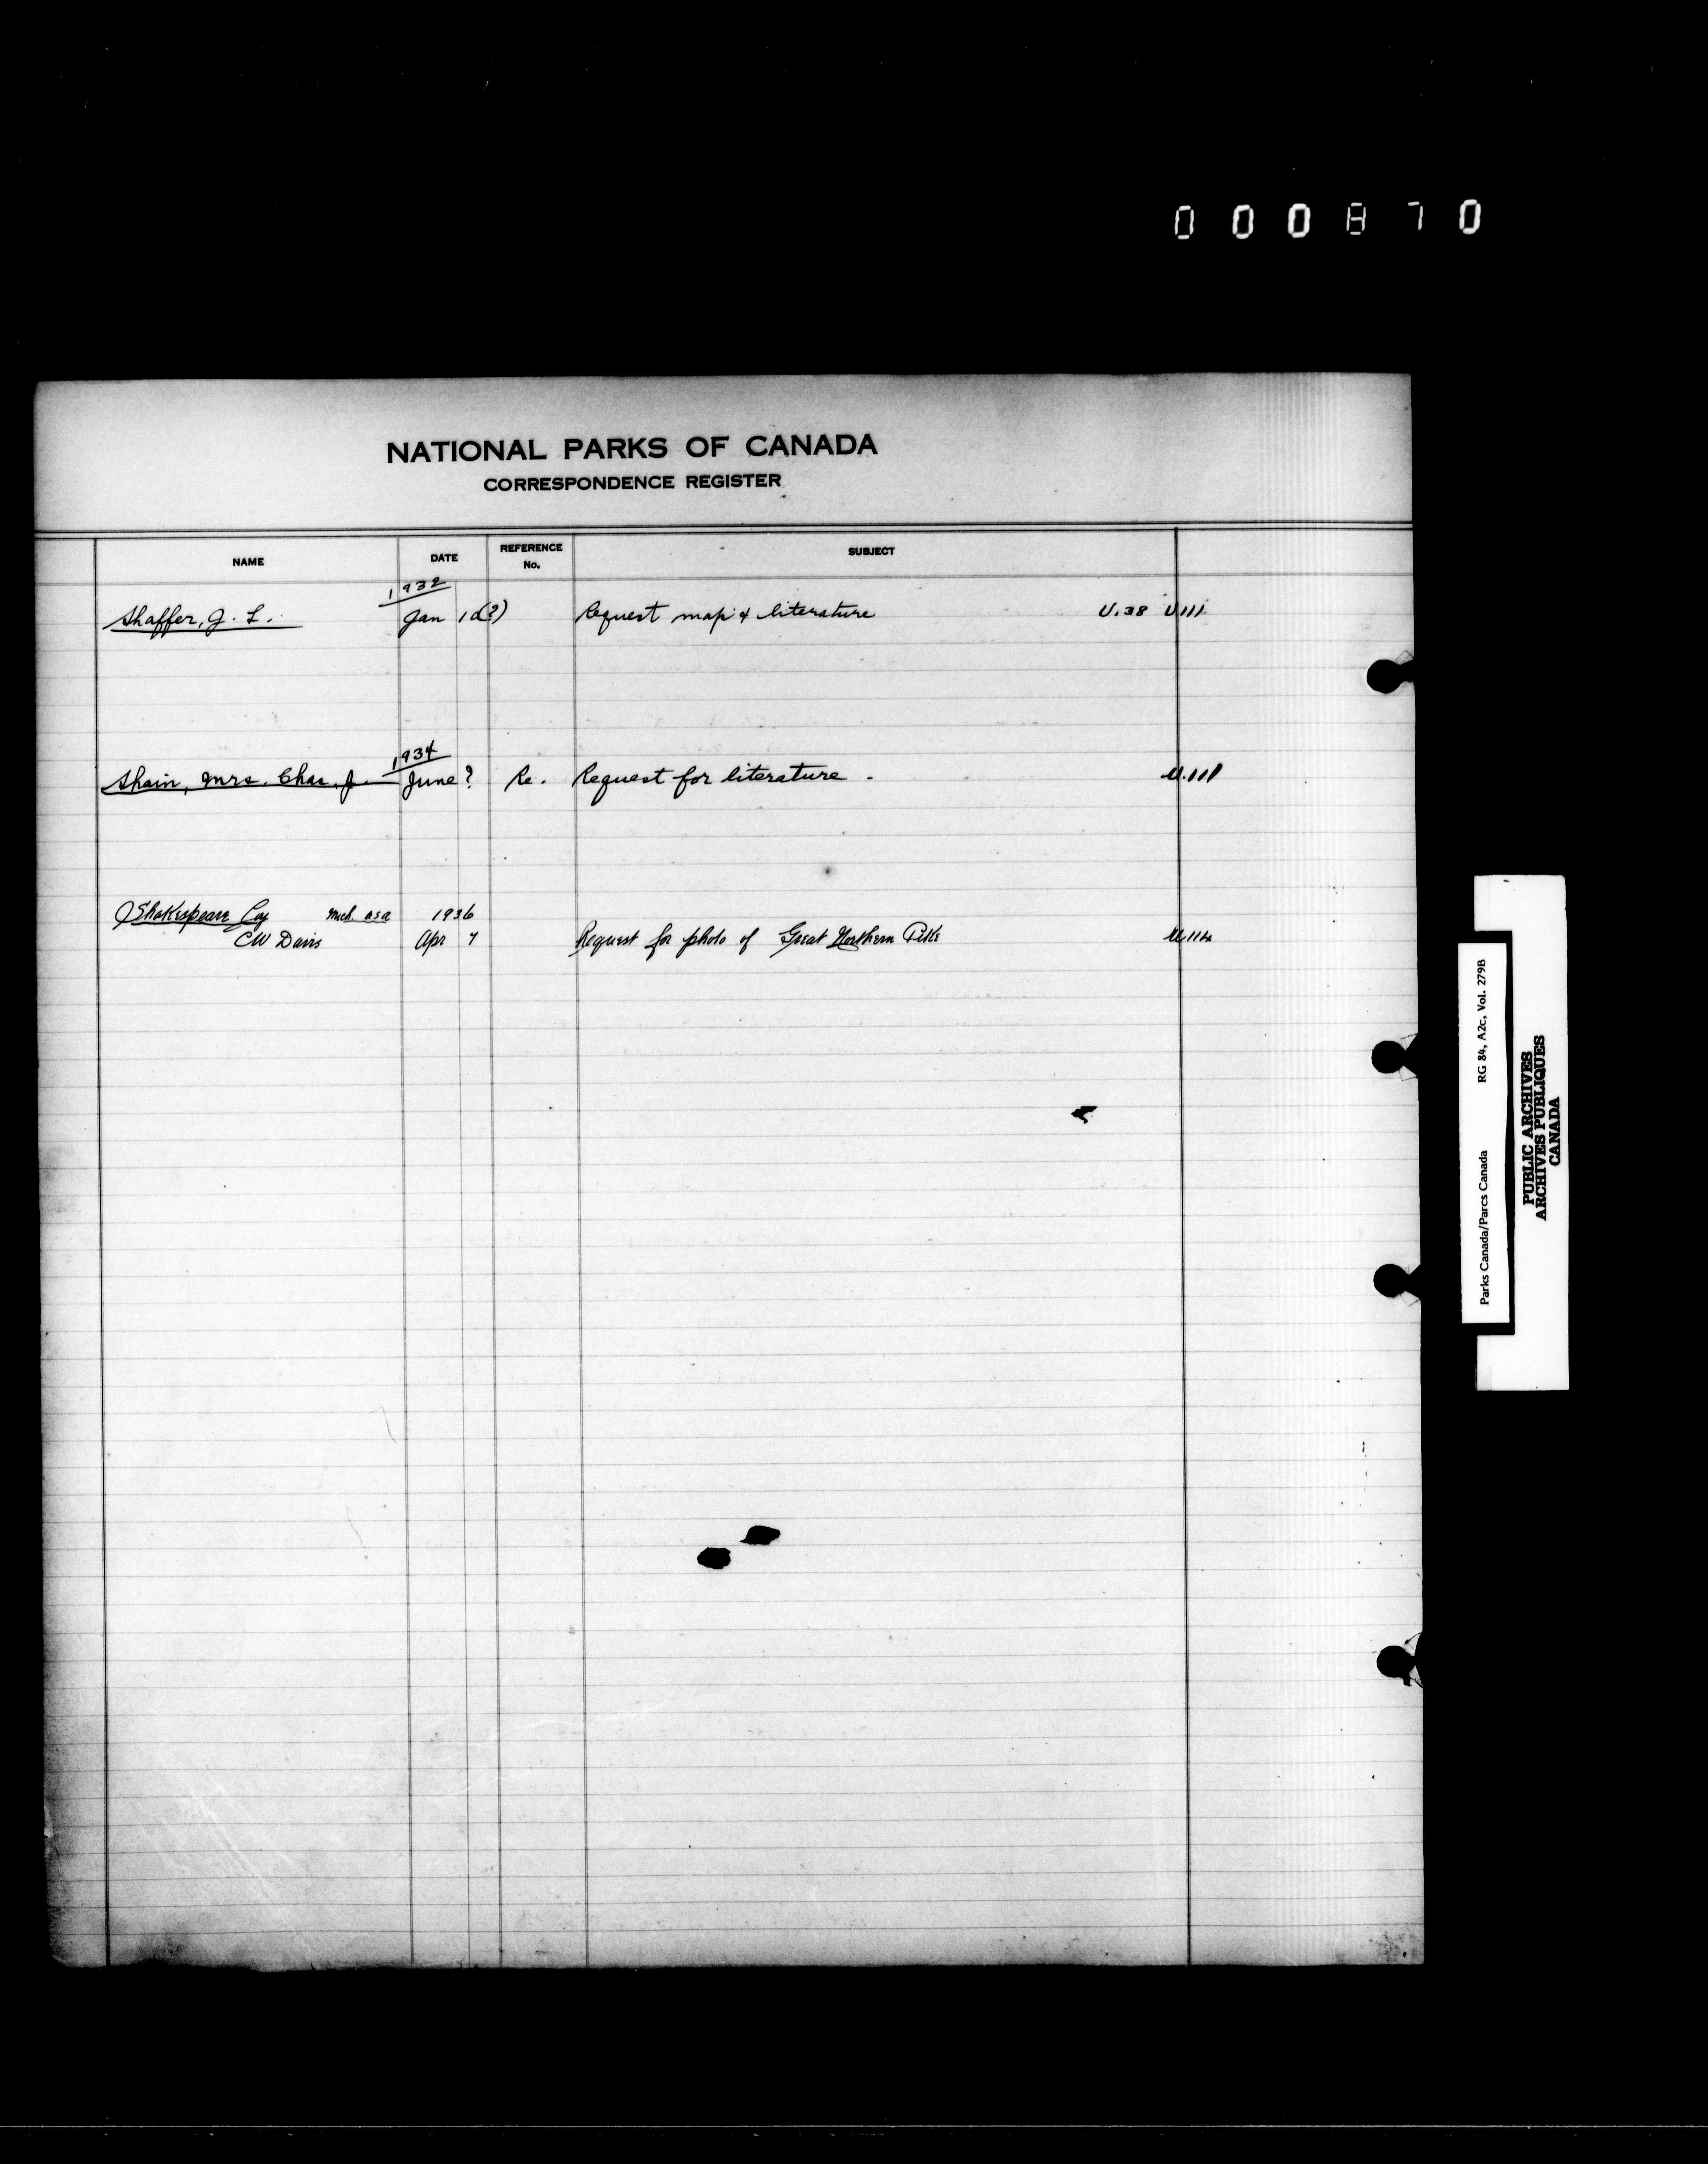 000870
NATIONAL PARKS OF CANADA
CORRESPONDENCE REGISTER
NAME DATE REFERENCE No. SUBJECT
1932
Shaffer, J. L. Jan Request map & literature U.38 U.111
1934
Shain, Mrs. Chas. J. June ? Re. Request for literature - U.111
Shakespeare Coy Mich. USA 1936
CW Davis Apr 7 Request for photo of Great Northern Pike
Parks Canada/Parcs Canada RG 84, A2c, Vol. 279B
PUBLIC ARCHIVES
ARCHIVES PUBLIQUES
CANADA